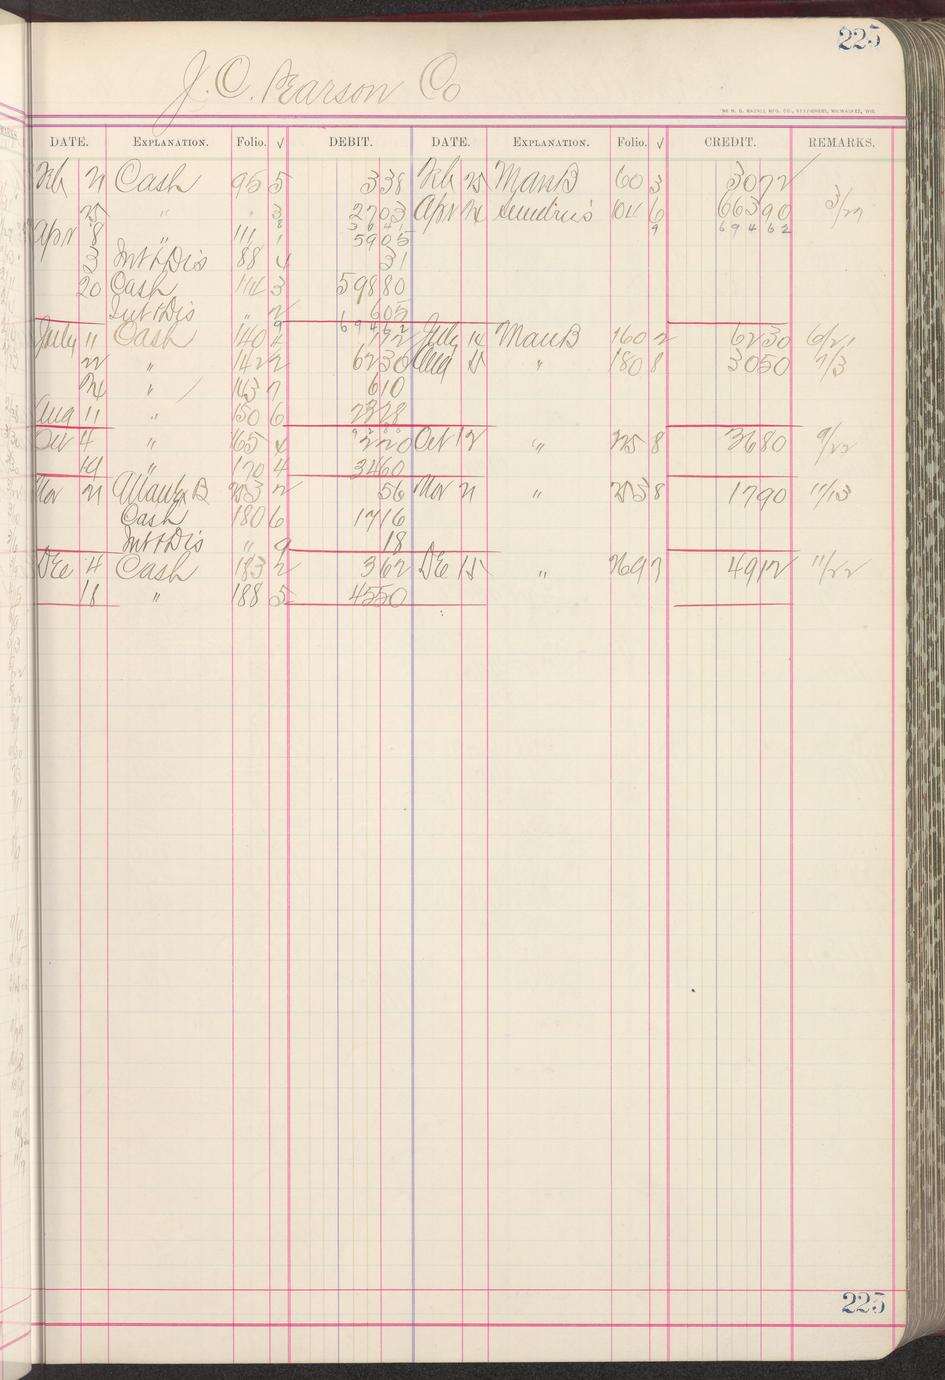 225
J. C. Pearson Co
THE H. G. RAZALL MFG. CO., STATIONERS, MILWAUKEE, WIS.
DATE. EXPLANATION. Folio. √ DEBIT. DATE. EXPLANATION. Folio. √ CREDIT. REMARKS.
Feb 21 Cash 95 5 338 Feb 25 Man B 60 3 3072
25 " " 3 2703 Apr 24 Sundries 104 6 66390 3/27
3041 9 69462
Apr 8 " 111 1 5905
3 Int & Dis 88 4 31
20 Cash 114 3 59880
Int & Dis " 2 605
69462
July 11 Cash 140 4 172 July 14 Man B 160 2 6230 6/21
22 " 142 2 6230 Aug 15 " 180 8 3050 7/3
24 " 143 7 610
Aug 11 " 150 6 2328
9280
Oct 4 " 165 4 220 Oct 12 " 225 8 3680 9/22
19 " 170 4 3460
Nov 21 Manf B 253 2 56 Nov 21 " 253 8 1790 11/13
Cash 180 6 1716
Int & Dis " 9 18
Dec 4 Cash 183 2 362 Dec 15 " 269 7 4912 11/22
18 " 188 5 4550
225